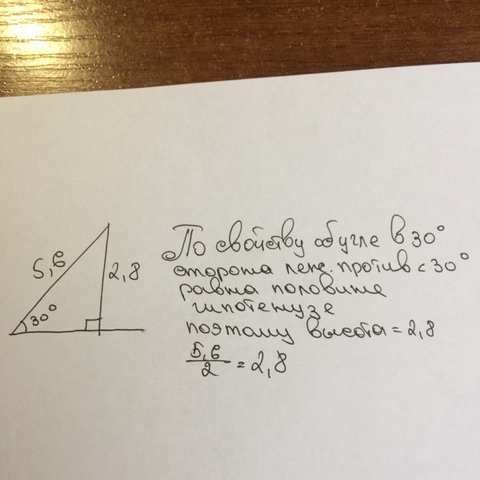 5,6
2,8
30°
По свойству об угле в 30°
сторона леж. против < 30°
равна половине
гипотенузе
поэтому высота = 2,8
5,6/2 = 2,8